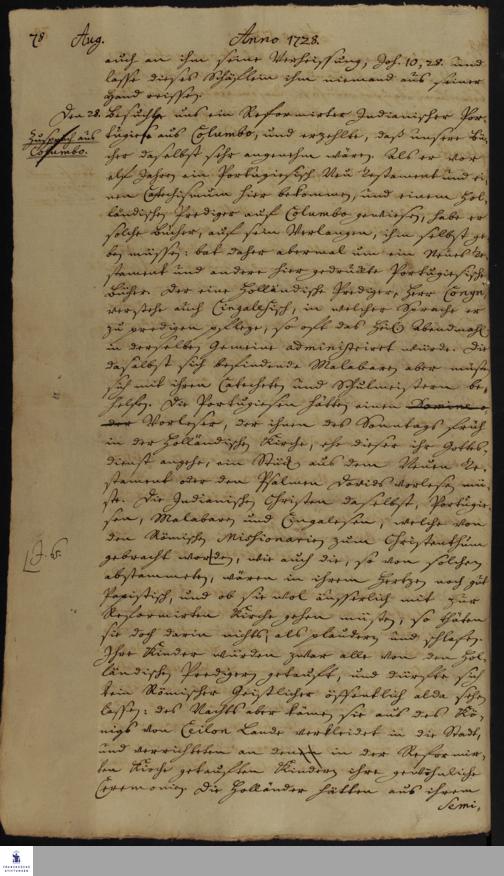 78 Aug. Anno 1728.
auch an ihm seine Verheissung, Joh. 10, 28. und
lasse dieses Schäflein ihm niemand aus seiner
Hand reissen.
Den 28. Besuchte uns ein Reformirter Indianischer Por-
Zuspruch aus
Columbo.
tugiese aus Columbo, und erzehlte, daß unsere Bü-
cher daselbst sehr angenehm wären. Als er vor
elf Jahren ein Portugiesisch Neu Testament und ei-
nen Catechismum hier bekommen, und einem Hol-
ländischen Prediger auf Columbo gewiesen, habe er
solche Bücher, auf sein Verlangen, ihm selbst ge-
ben müssen: bat daher abermal um ein Neues Te-
stament und andere hier gedruckte Portugiesische
Bücher. Der eine Holländische Prediger, Herr
verstehe auch Cingalesisch, in welcher Sprache er
zu predigen pflege, so oft das Heil. Abendmahl
in derselben Gemeine administriret würde. Die
daselbst sich befindende Malabaren aber müsten
sich mit ihren Catecheten und Schulmeistern be-
helfen. Die Portugiesen hätten einen
der Vorleser, der ihnen des Sonntags früh
in der Holländischen Kirche, ehe dieser ihr Gottes-
dienst angehe, ein Stück aus dem Neuen Te-
stament oder den Psalmen Davids vorlesen mü-
ste. Die Indianischen Christen daselbst, Portugie-
sen, Malabaren und Cingalesen, welche von
den Römischen Missionarien zum Christenthum
gebracht worden, wie auch die, so von solchen
abstammeten, wären in ihrem Hertzen noch gut
Papistisch, und ob sie wol äusserlich mit zur
Reformirten Kirche gehen müsten, so thäten
sie doch darin nichts, als plaudern und schlafen.
Ihre Kinder würden zwar alle von den Hol-
ländischen Predigern getauft, und dürfte sich
kein Römischer Geistlicher öffentlich alda sehen
lassen: des Nachts aber kämen sie aus des Kö-
nigs von Ceilon Lande verkleidet in die Stadt,
und verrichteten an den in der Reformir-
ten Kirche getauften Kindern ihre gewöhnliche
Ceremonien. Die Holländer hätten aus ihrem
Semi-
FRANCKESCHE
STIFTUNGEN